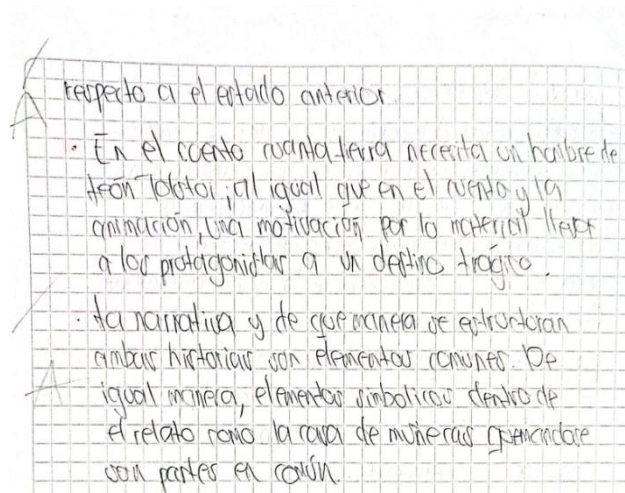 respecto a el estado anterior.
· En el cuento cuanta tierra necesita un hombre de
León Tolstoi; al igual que en el cuento y la
animación, una motivación por lo material llevar
a los protagonistas a un destino trágico.
· La narrativa y de que manera se estructuran
ambas historias son elementos comunes. De
igual manera, elementos simbolicos dentro de
el relato como la casa de muñecas quemandose
son partes en común.